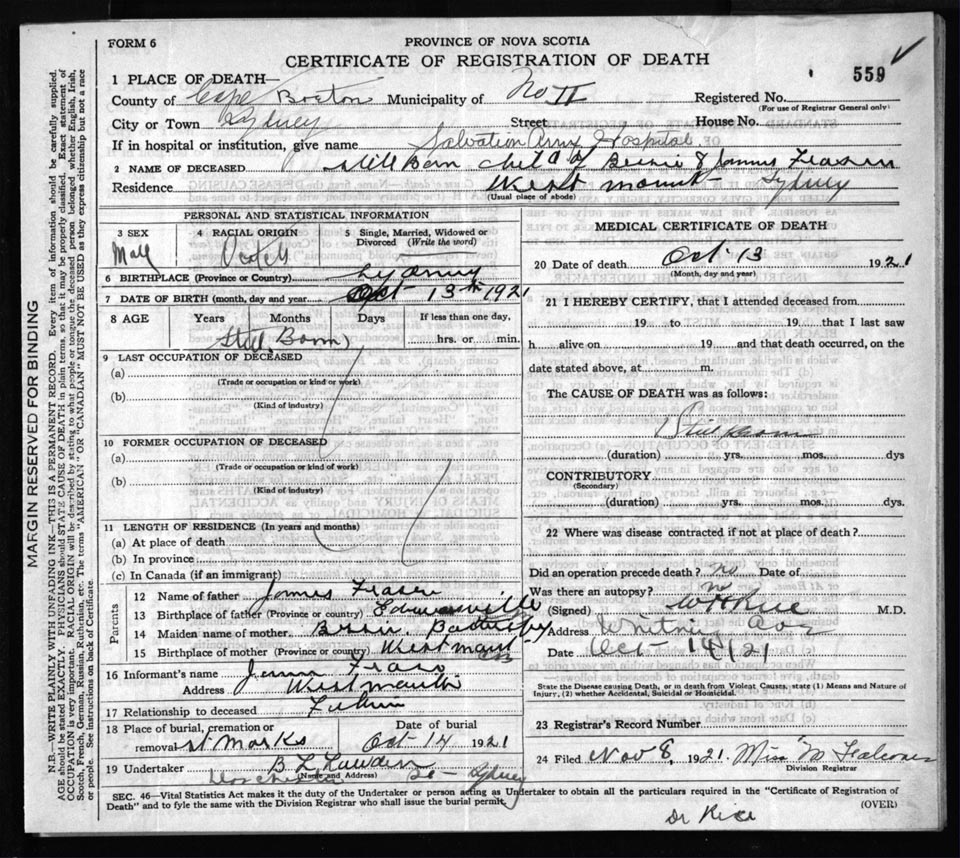 FORM 6
PROVINCE OF NOVA SCOTIA
CERTIFICATE OF REGISTRATION OF DEATH
559
1 PLACE OF DEATH—
County of Cape Breton Municipality of No II Registered No.
(For use of Registrar General only)
City or Town Sydney Street House No.
If in hospital or institution, give name Salvation Army Hospital
2 NAME OF DECEASED Still Born child of & James Fraser
Residence West mount Sydney
(Usual place of abode)
PERSONAL AND STATISTICAL INFORMATION
3 SEX
Male
4 RACIAL ORIGIN
5 Single, Married, Widowed or Divorced (Write the word)
6 BIRTHPLACE (Province or Country) Sydney
7 DATE OF BIRTH (month, day and year) Oct 13th 1921
8 AGE Years Months Days If less than one day,
Still Born hrs. or min.
9 LAST OCCUPATION OF DECEASED
(a)
(Trade or occupation or kind or work)
(b)
(Kind of industry)
10 FORMER OCCUPATION OF DECEASED
(a)
(Trade or occupation or kind of work)
(b)
(Kind of industry)
11 LENGTH OF RESIDENCE (In years and months)
(a) At place of death
(b) In province
(c) In Canada (if an immigrant)
Parents
12 Name of father James Fraser
13 Birthplace of father (Province or country) Edwardsville
14 Maiden name of mother
15 Birthplace of mother (Province or country) West mount CB
16 Informant's name James Fraser
Address West mount
17 Relationship to deceased Father
18 Place of burial, cremation or removal St Marks
Date of burial
Oct 14 1921
19 Undertaker
(Name and Address)
Dorchester St - Sydney
MEDICAL CERTIFICATE OF DEATH
20 Date of death Oct 13 1921
(Month, day and year)
21 I HEREBY CERTIFY, that I attended deceased from
19 to 19 that I last saw
h alive on 19 and that death occurred, on the
date stated above, at m.
The CAUSE OF DEATH was as follows:
Still born
(duration) yrs. mos. dys
CONTRIBUTORY
(Secondary)
(duration) yrs. mos. dys.
22 Where was disease contracted if not at place of death?
Did an operation precede death? no Date of
Was there an autopsy? no
(Signed) Rice M.D.
Address Whitney Ave
Date Oct 14/21
State the Disease causing Death, or in death from Violent Causes, state (1) Means and Nature of
Injury, (2) whether Accidental, Suicidal or Homicidal.
23 Registrar's Record Number
24 Filed Nov 8, 1921. Miss M Falconer
Division Registrar
SEC. 46—Vital Statistics Act makes it the duty of the Undertaker or person acting as Undertaker to obtain all the particulars required in the "Certificate of Registration of
Death" and to fyle the same with the Division Registrar who shall issue the burial permit.
(OVER)
Dr Rice
MARGIN RESERVED FOR BINDING
N.B.—WRITE PLAINLY WITH UNFADING INK—THIS IS A PERMANENT RECORD. Every item of information should be carefully supplied.
AGE should be stated EXACTLY. PHYSICIANS should STATE CAUSE OF DEATH in plain terms, so that it may be properly classified. Exact statement of
OCCUPATION is very important. RACIAL ORIGIN will be described by stating to what people or tongue the deceased person belonged whether English, Irish,
Scotch, French, German, Russian, Ruthenian, etc. The terms "AMERICAN" OR "CANADIAN" MUST NOT BE USED as they express citizenship but not a race
or people. See instructions on back of Certificate.